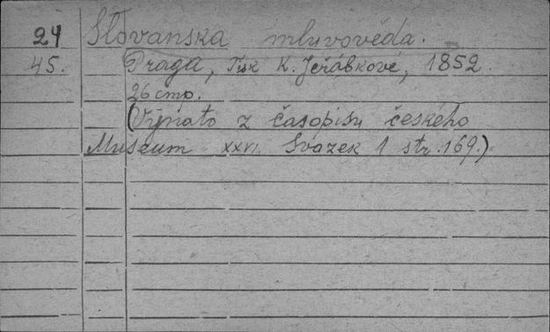 24 Słovanska mluvověda.
45. Praga, Tisk K. Jeřábkové, 1852.
26 cmo.
(Vyňato z časopisu českého
Museum XXVI. Svazek 1 str. 169.)